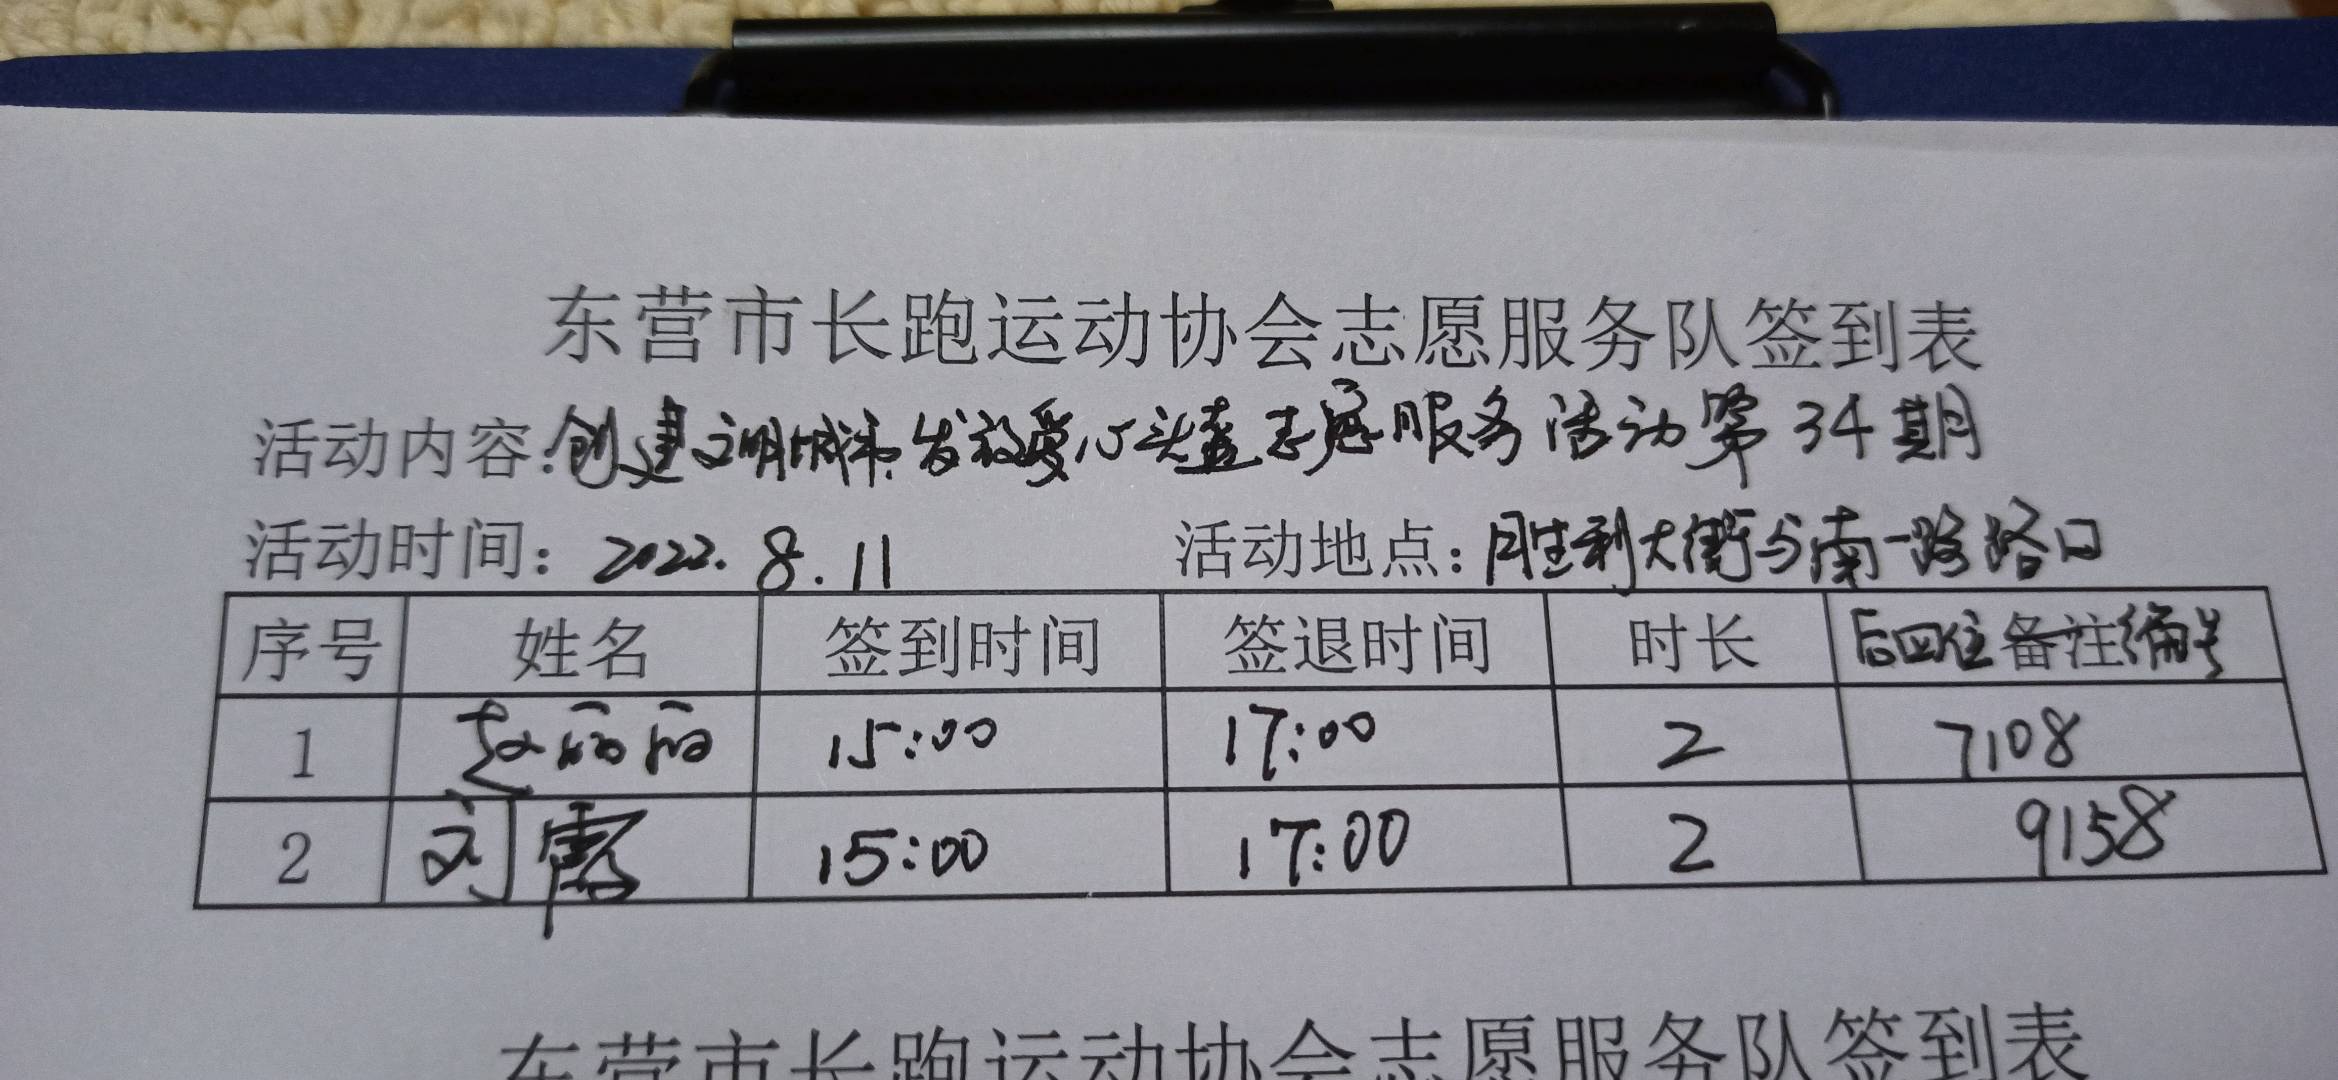 东营市长跑运动协会志愿服务队签到表
活动内容:创建文明城市发放爱心头盔志愿服务活动第34期
活动时间: 2022.8.11 活动地点: 胜利大街与南一路路口
序号 姓名 签到时间 签退时间 时长 后四位备注编号
1 赵丽丽 15:00 17:00 2 7108
2 刘霞 15:00 17:00 2 9158
东营市长跑运动协会志愿服务队签到表